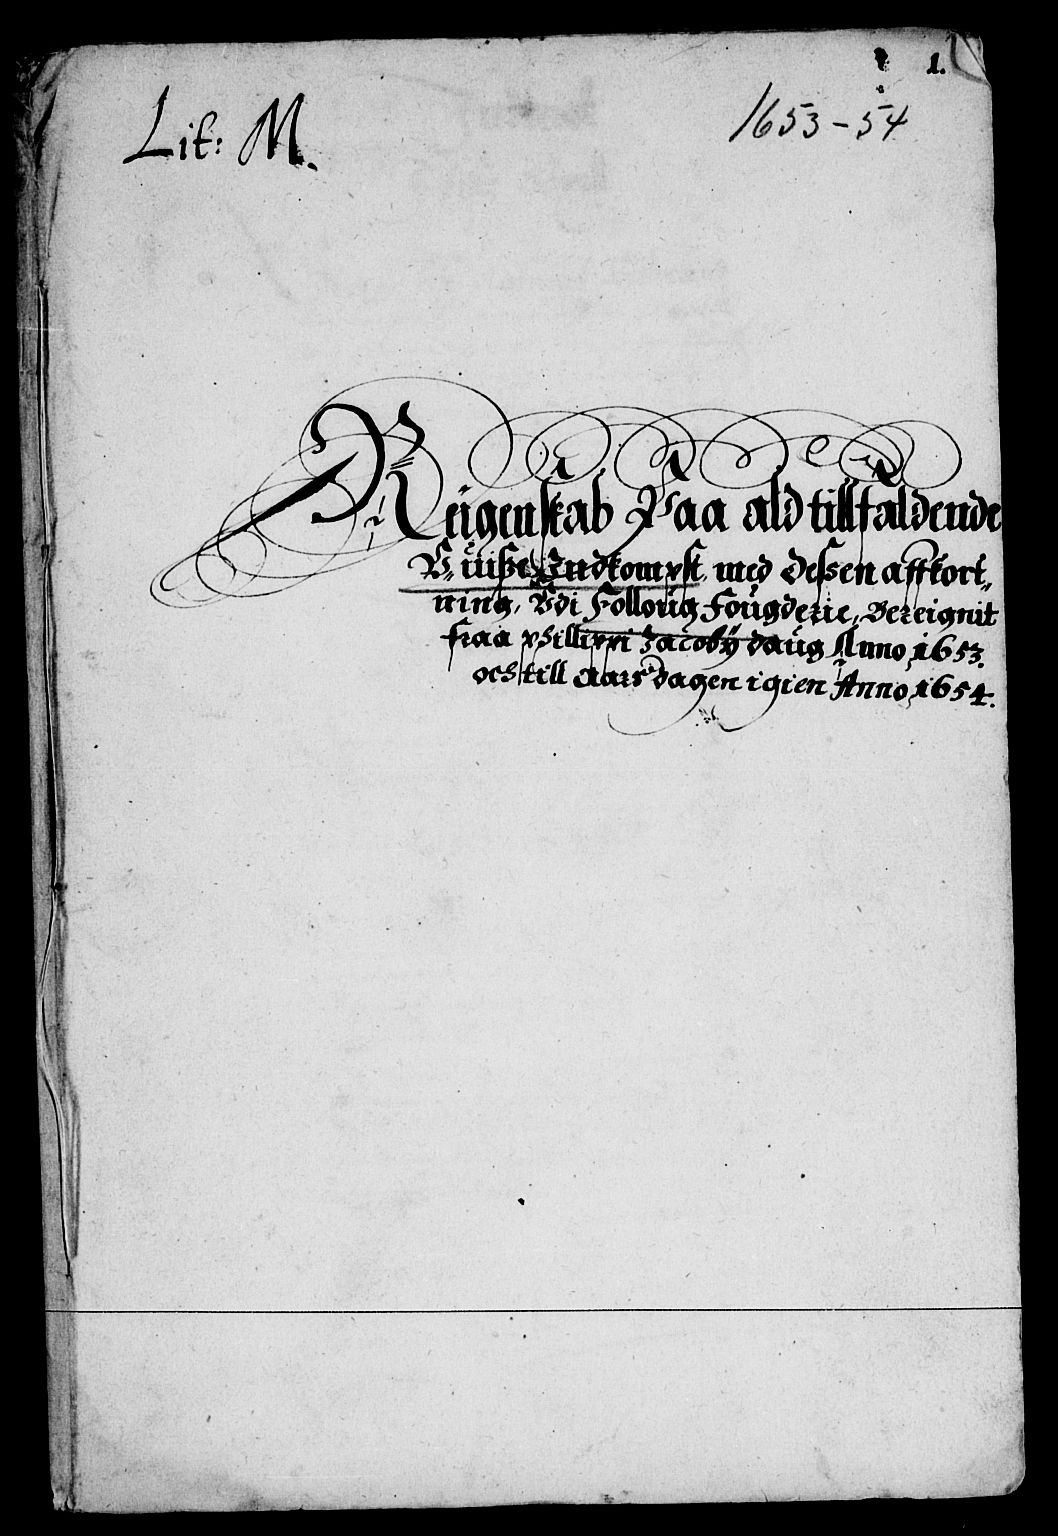 1.
Lit: M.
1653-54
Reigenskab Paa ald tillfaldende
Uuiße Indkompst, med deßen affkort„
ning, Udi Folloug Fougderie, Bereignit
fraa Phillippi Jacobÿ daug Anno 1653.
och till aarsdagen igien Anno 1654.